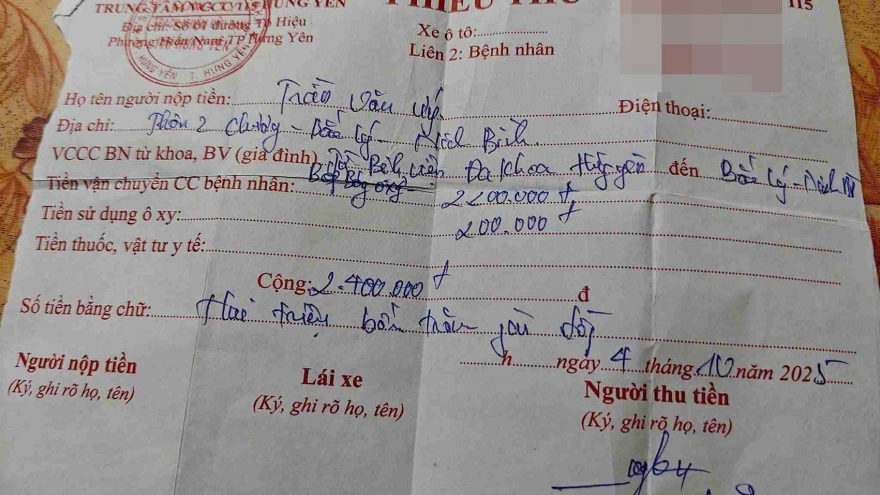 TRUNG TÂM VCCC 115 HƯNG YÊN
PHIẾU THU
115
Địa chỉ: Số 01 đường Tô Hiệu
Phường Hiến Nam, TP Hưng Yên
Xe ô tô:
Liên 2: Bệnh nhân
HƯNG YÊN T. HƯNG YÊN
Họ tên người nộp tiền: Trần Văn
Điện thoại:
Địa chỉ: Thôn 2 - Bắc Lý - Ninh Bình
VCCC BN từ khoa, BV (gia đình) Bệnh viện Đa khoa Hưng Yên đến Bắc Lý - Ninh
Tiền vận chuyển CC bệnh nhân: 2200.000 đ
Tiền sử dụng ô xy: 200.000 đ
Tiền thuốc, vật tư y tế:
Cộng: 2.400.000 đ đ
Số tiền bằng chữ: Hai triệu bốn trăm đồng
h ngày 4 tháng 10 năm 2025
Người nộp tiền
(Ký, ghi rõ họ, tên)
Lái xe
(Ký, ghi rõ họ, tên)
Người thu tiền
(Ký, ghi rõ họ, tên)